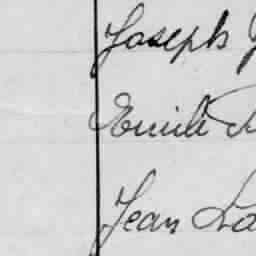 Joseph
Emile
Jean